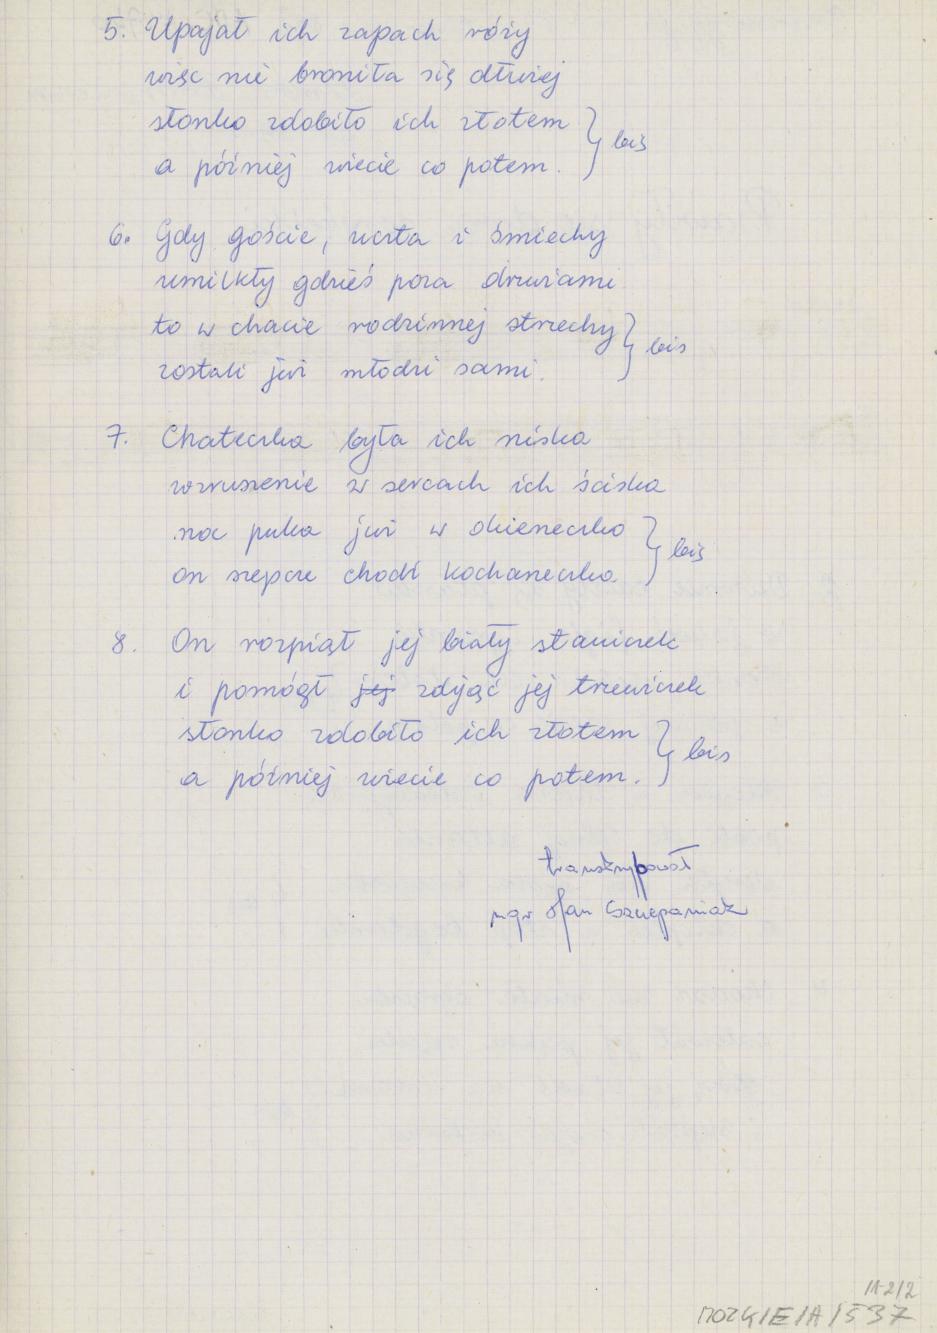 5. Upajał ich zapach róży
więc nie broniła się dłużej
słonko zdobiło ich złotem } bis
a później wiecie co potem.
6. Gdy goście, uczta i śmiechy
umilkły gdzieś poza drzwiami
to w chacie rodzinnej strzechy } bis
zostali już młodzi sami.
7. Chateczka była ich niska
wzruszenie w sercach ich ściska
noc puka już w okieneczko } bis
on szepcze chodź kochaneczko
8. On rozpiął jej biały staniczek
i pomógł jej zdjąć jej trzewiczek
słonko zdobiło ich złotem } bis
a później wiecie co potem.
transkrybował
mgr Jan Szczepaniak
1A 2/2
MOZG/E/A/537